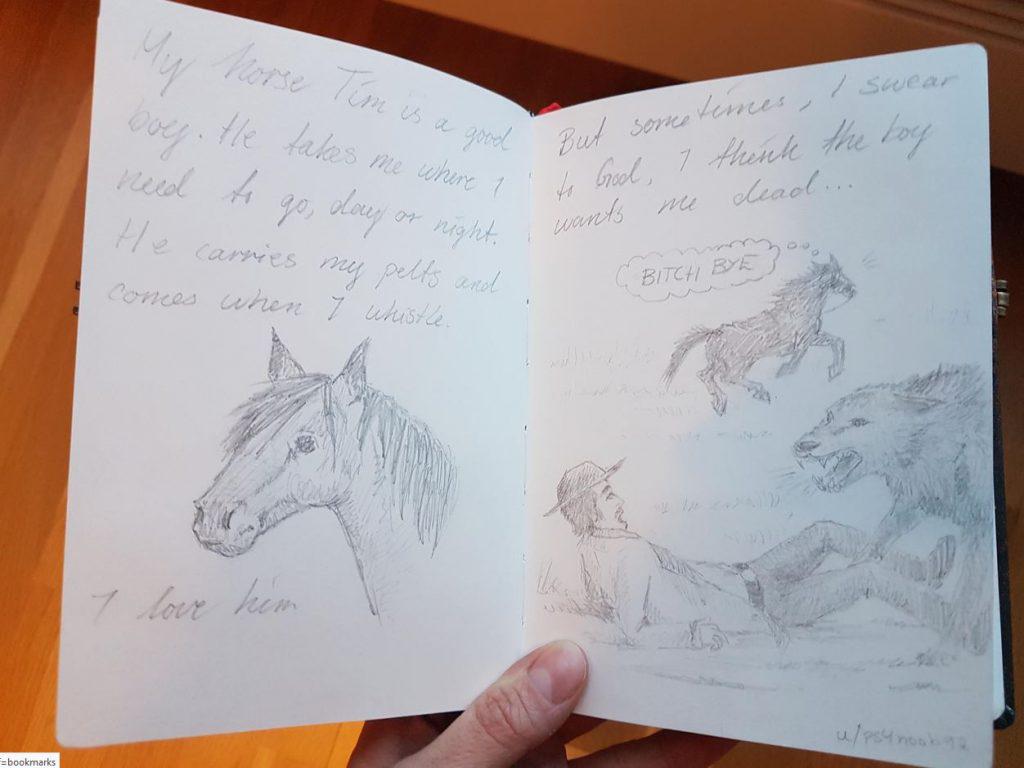 My horse Tim is a good
boy. He takes me where I
need to go, day or night.
He carries my pelts and
comes when I whistle.
I love him
But sometimes, I swear
to God, I think the boy
wants me dead...
BITCH BYE
u/ps4noob92
f=bookmarks